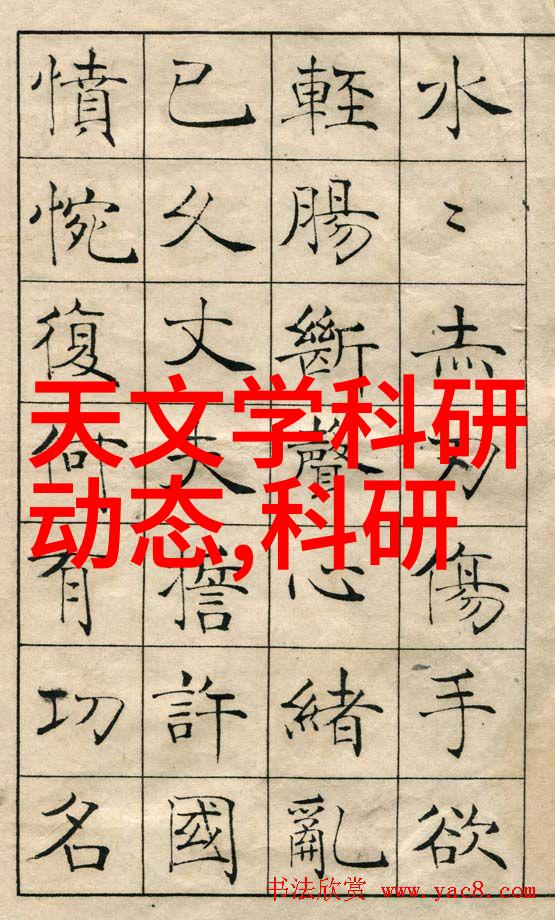 水〻赤刃傷手欲
輕腸斷聲心緒亂
已久丈夫誓許國
憤惋復何有功名
天文学科研
动态,科研
书法欣赏 www.yac8.com